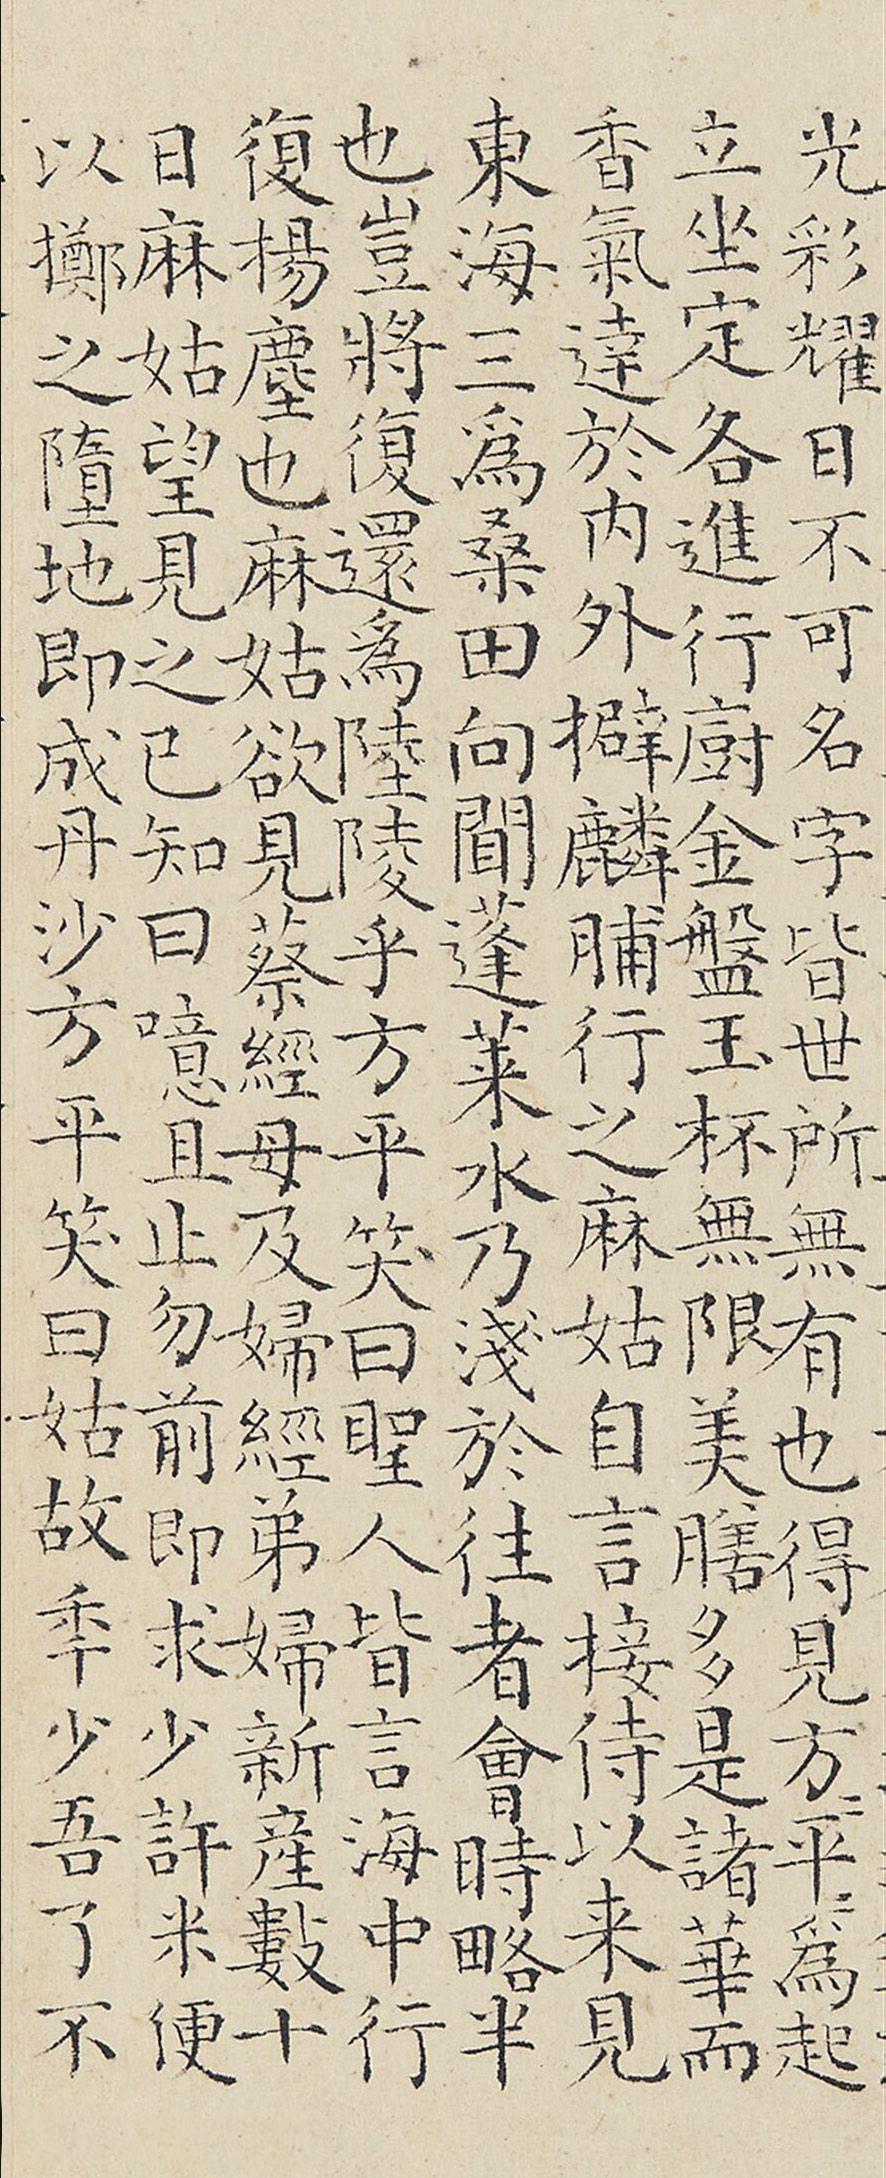 光彩耀日不可名字皆世所無有也得見方〻平〻爲起
立坐定各進行廚金盤玉杯無限美膳多是諸華而
香氣達於内外擗麟脯行之麻姑自言接侍以来見
東海三爲桑田向間蓬萊水乃淺於往者會時略半
也豈將復還爲陸陵乎方平笑曰聖人皆言海中行
復揚塵也麻姑欲見蔡經母及婦經弟婦新産數十
日麻姑望見之已知曰噫且止勿前即求少許米便
以擲之墮地即成丹沙方平笑曰姑故季少吾了不